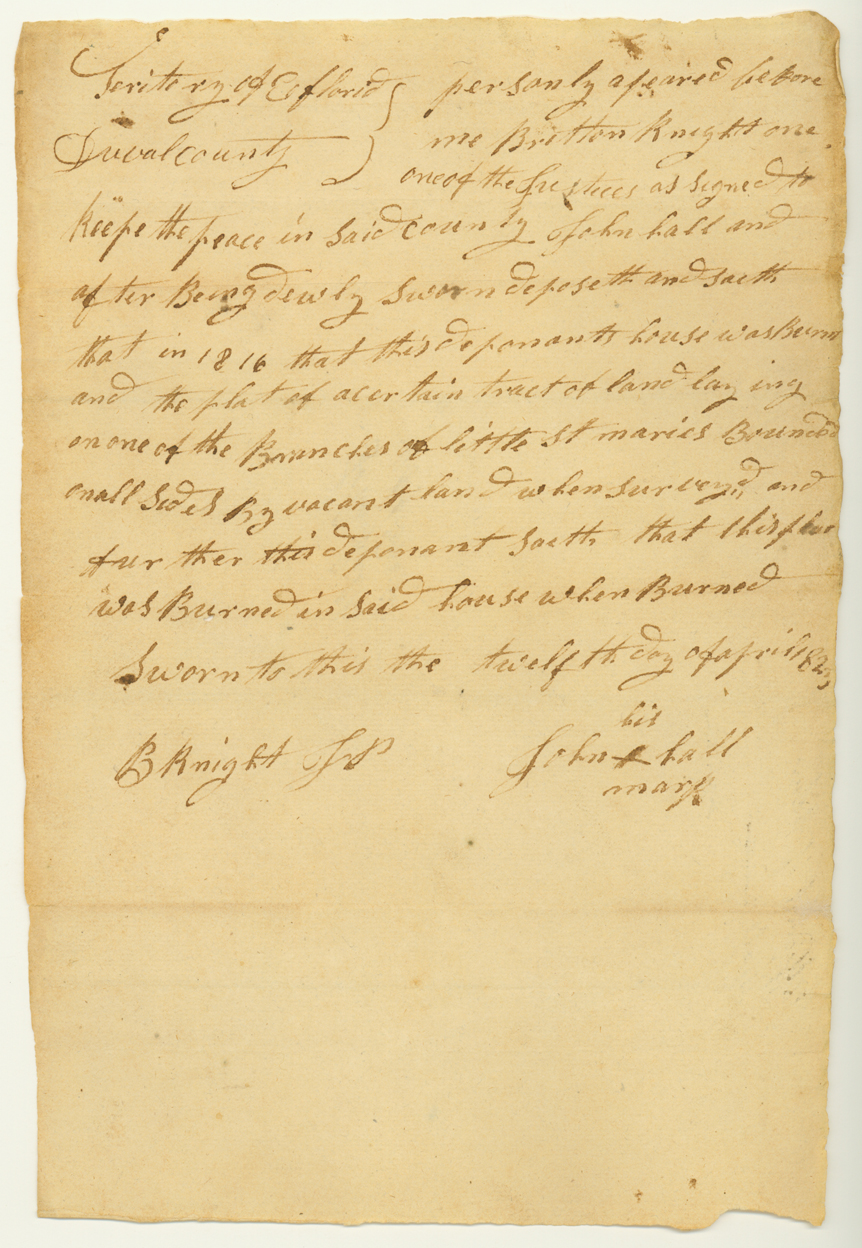 Teritory of E florid } personly apeired before
Duval county } me Britton Knight one
one of the Justices assigned to
keepe the peace in said county John hall and
after Being dewly sworn deposeth and saeth
that in 1816 that this deponants house was Burnt
and the plat of a certain tract of land lay ing
on one of the Branches of little St maries Bounded
on all sides By vacant land when surveyd and
fur ther this deponant saeth that this plat
was Burned in said house when Burned
Sworn to this the twelfth day of april 1823
his
B Knight JP John x hall
mark